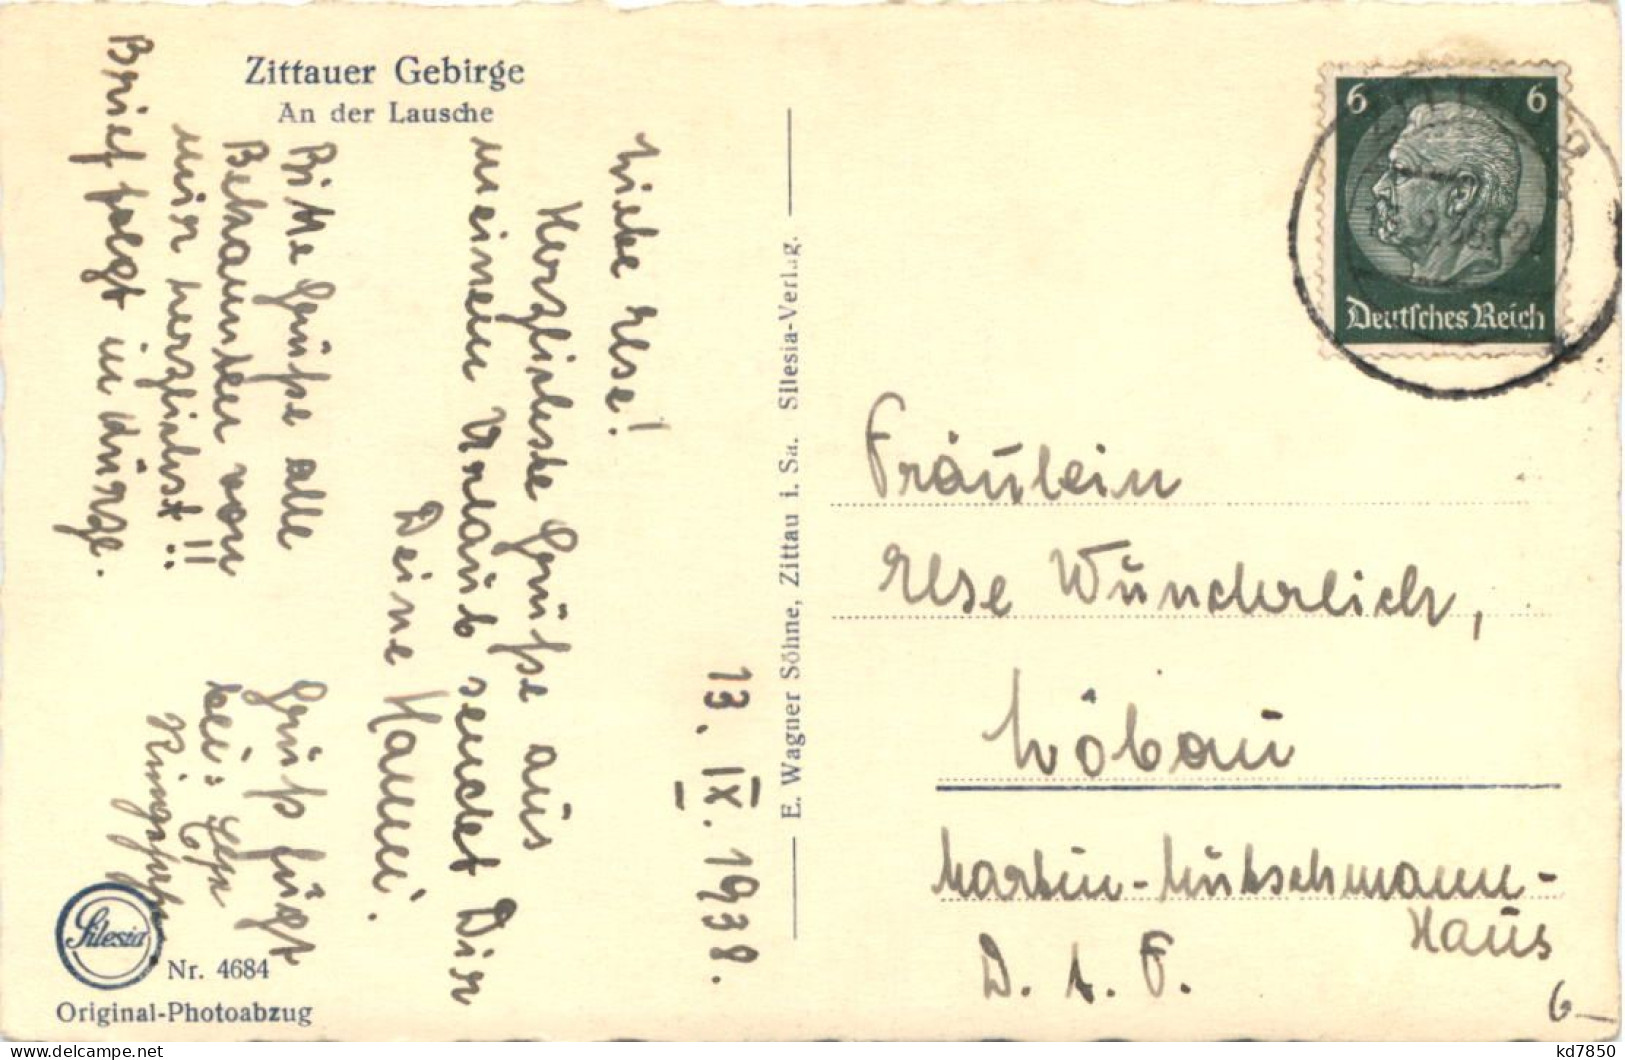 Zittauer Gebirge
An der Lausche
13. IX. 1938.
Liebe Else!
Herzlichste Grüße aus
meinem Urlaub sendet Dir
Deine Hanni.
Bitte Grüße alle
Bekannten von
mir herzlichst!!
Brief folgt in Kürze.
Gruß fügt
bei:
Silesia
Nr. 4684
Original-Photoabzug
E. Wagner Söhne, Zittau i. Sa. Silesia-Verlag.
6 6
Deutsches Reich
Fräulein
Else Wunderlich,
Löbau
Martin-Mutschmann-
Haus
D. A. F.
6-
kd7850